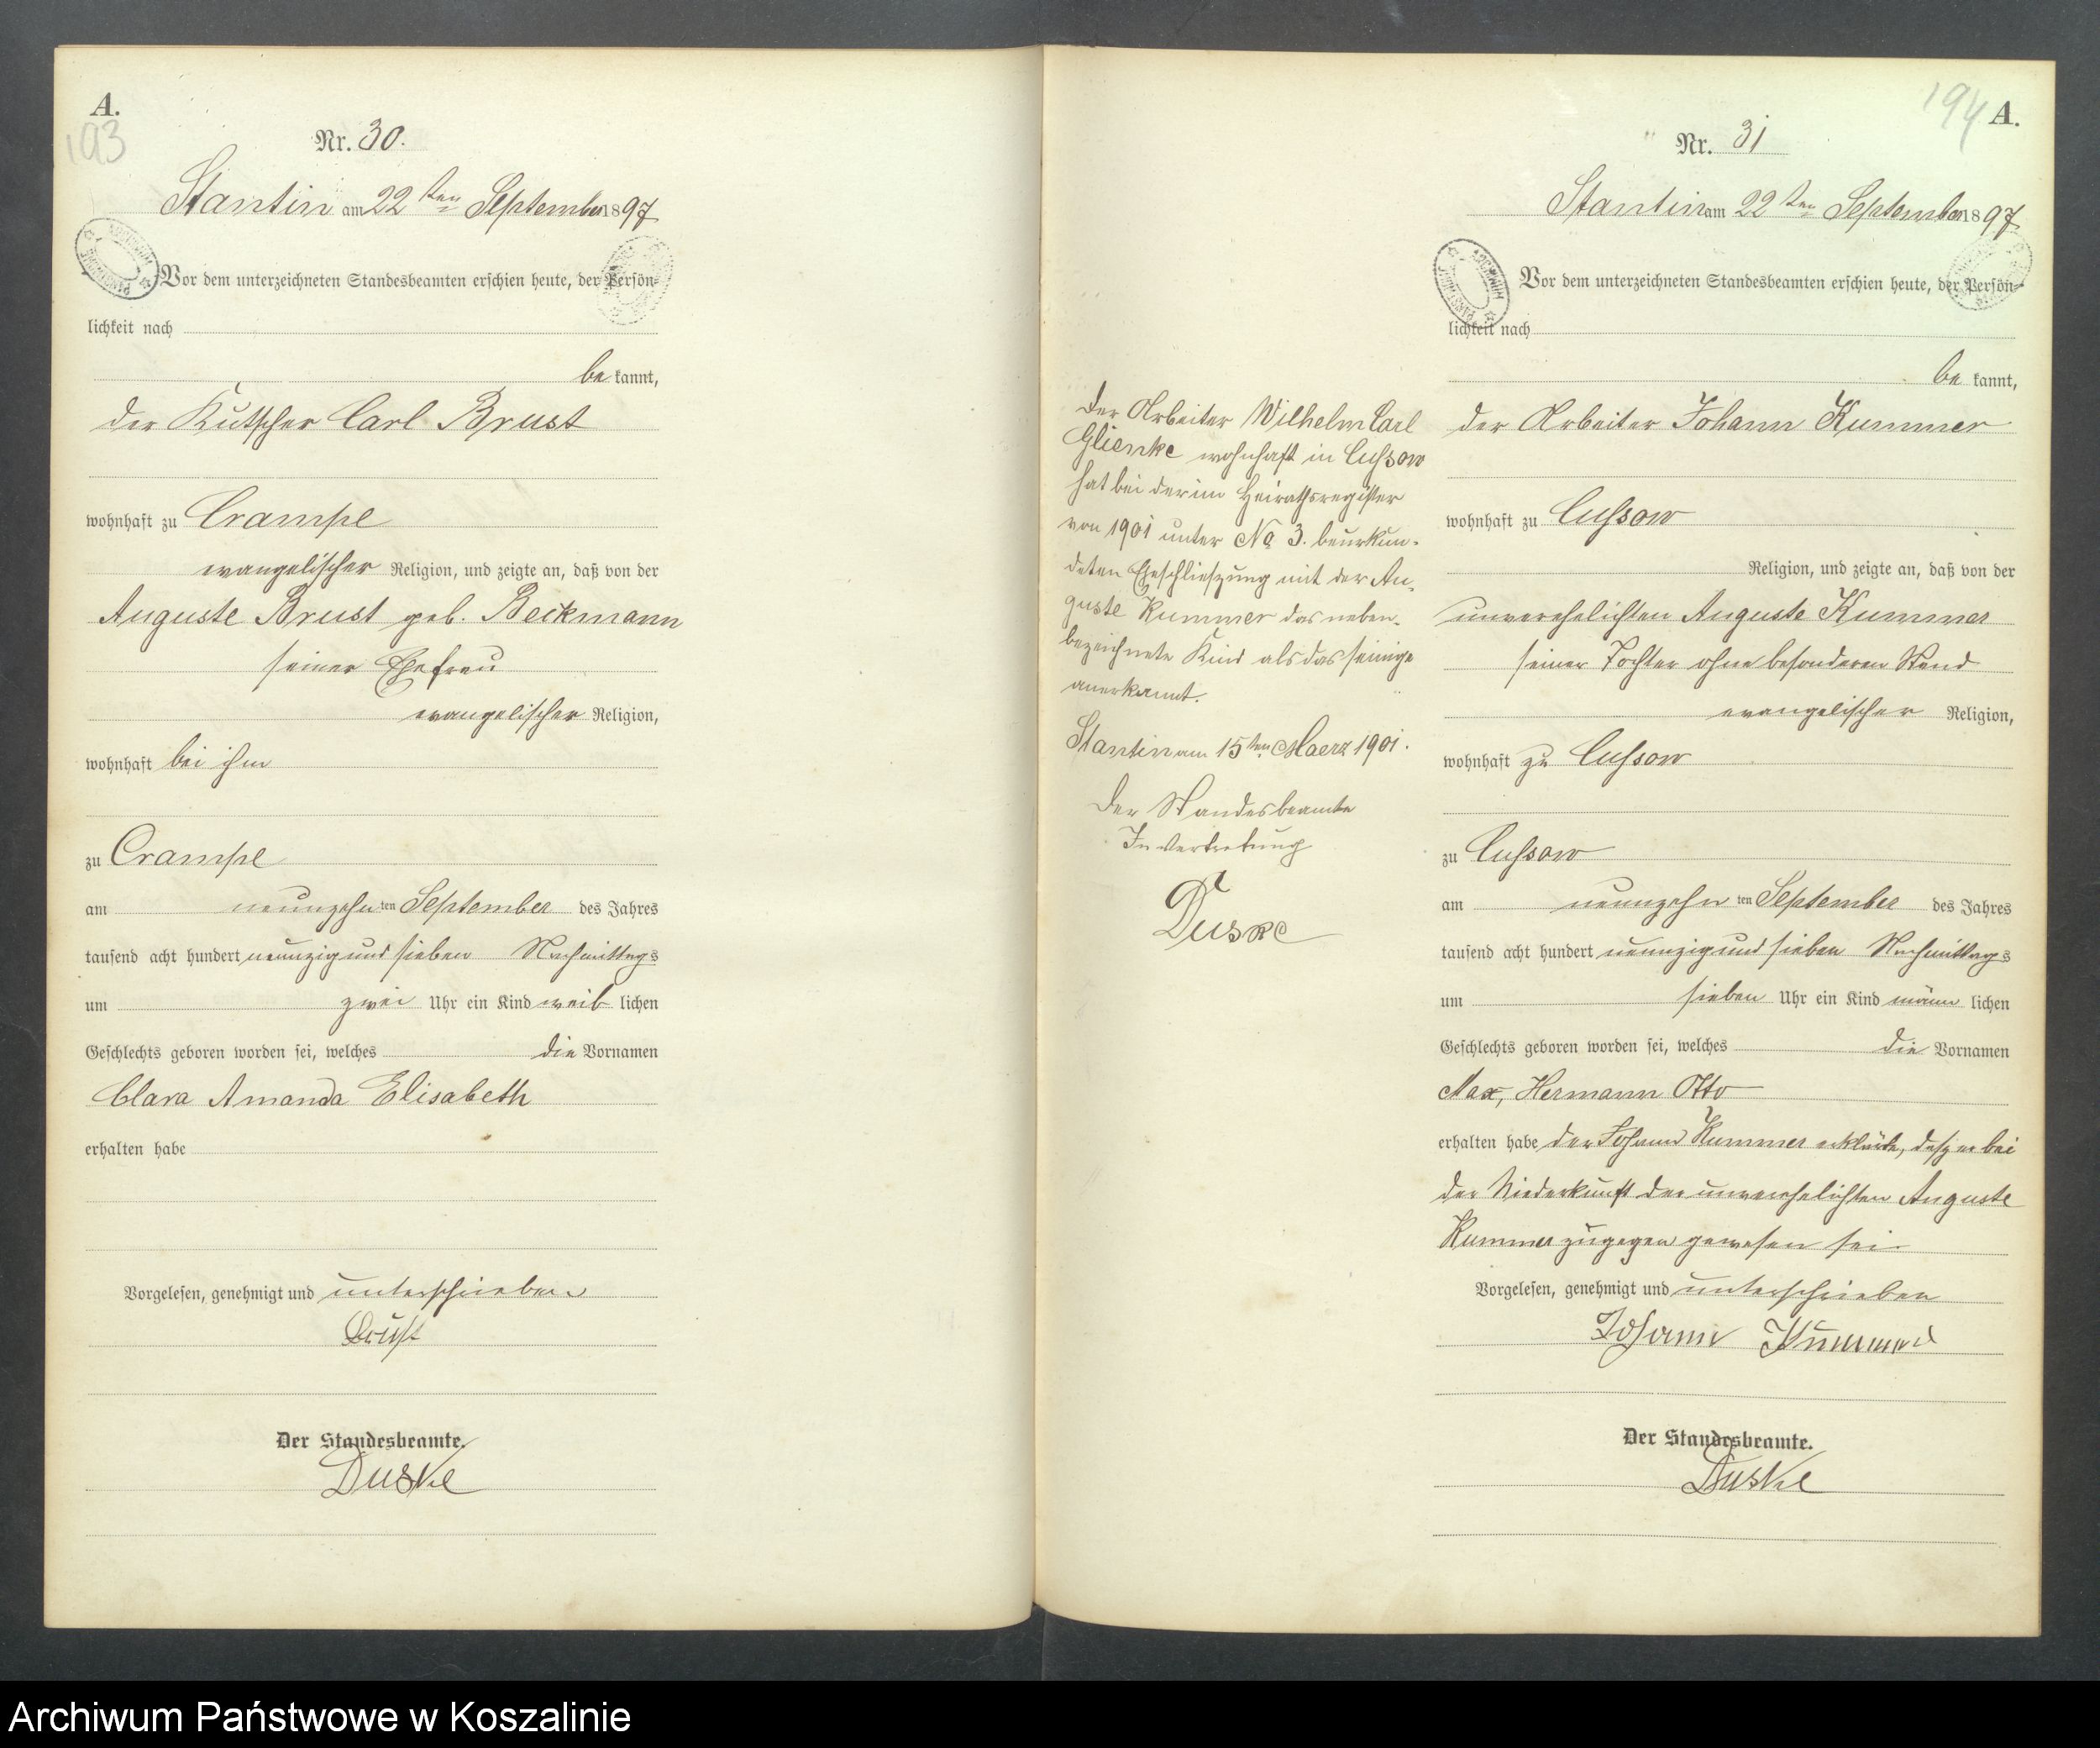 A.
193
Nr. 30.
Stantin am 22 ten September 1897
Vor dem unterzeichneten Standesbeamten erschien heute, der Persön-
lichkeit nach
be kannt,
der Kutscher Carl Brust
wohnhaft zu Crampe
evangelischer Religion, und zeigte an, daß von der
Auguste Brust geb. Beckmann
seiner Ehefrau
evangelischer Religion,
wohnhaft bei ihm
zu Crampe
am neunzehn ten September des Jahres
tausend acht hundert neunzig und sieben Nachmittags
um zwei Uhr ein Kind weib lichen
Geschlechts geboren worden sei, welches die Vornamen
Clara Amanda Elisabeth
erhalten habe
Vorgelesen, genehmigt und unterschrieben
Brust
Der Standesbeamte.
Duske
Der Arbeiter Wilhelm Carl
Glienke wohnhaft in Cussow
hat bei der im Heirathsregister
von 1901 unter No 3. beurkun-
deten Eheschlieszung mit der Au-
guste Kummer das neben-
bezeichnete Kind als das seinige
anerkannt.
Stantin am 15ten Maerz 1901.
Der Standesbeamte
In Vertretung
Duske
194
A.
Nr. 31
Stantin am 22 ten September 1897
Vor dem unterzeichneten Standesbeamten erschien heute, der Persön-
lichkeit nach
be kannt,
der Arbeiter Johann Kummer
wohnhaft zu Cussow
Religion, und zeigte an, daß von der
unverehelichten Auguste Kummer
seiner Tochter ohne besonderen Stand
evangelischer Religion,
wohnhaft zu Cussow
zu Cussow
am neunzehn ten September des Jahres
tausend acht hundert neunzig und sieben Nachmittags
um sieben Uhr ein Kind männ lichen
Geschlechts geboren worden sei, welches die Vornamen
Max, Hermann Otto
erhalten habe der Johann Kummer erklärte, dasz er bei
der Niederkunft der unverehelichten Auguste
Kummer zugegen gewesen sei
Vorgelesen, genehmigt und unterschrieben
Johann Kummer
Der Standesbeamte.
Duske
Archiwum Państwowe w Koszalinie